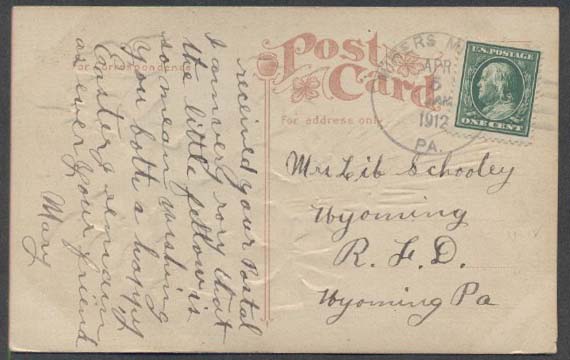 Post
Card
For correspondence
For address only
APR
5
AM
1912
PA.
U.S. POSTAGE
ONE CENT
received your Postal
I am very sory that
the little fellow is
so mean wishing
you both a happy
Easter, remain
as ever your friend
Mary
Mrs Lib Schooley
Wyoming
R. F. D.
Wyoming Pa